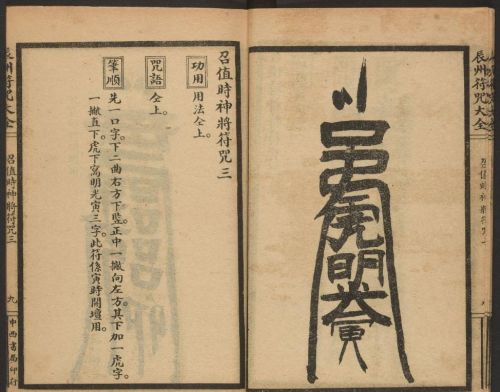 辰州符咒大全
虎
明
光
寅
召值時神將符咒三
功用 用法仝上。
咒語 仝上。
筆順 先一口字。下二曲右方下豎。正中一撇向左方。其下加一虎字。
一撇直下。虎下寫明光寅三字。此符係寅時開壇用。
辰州符咒大全
召值時神將符咒三
九
中西書局印行